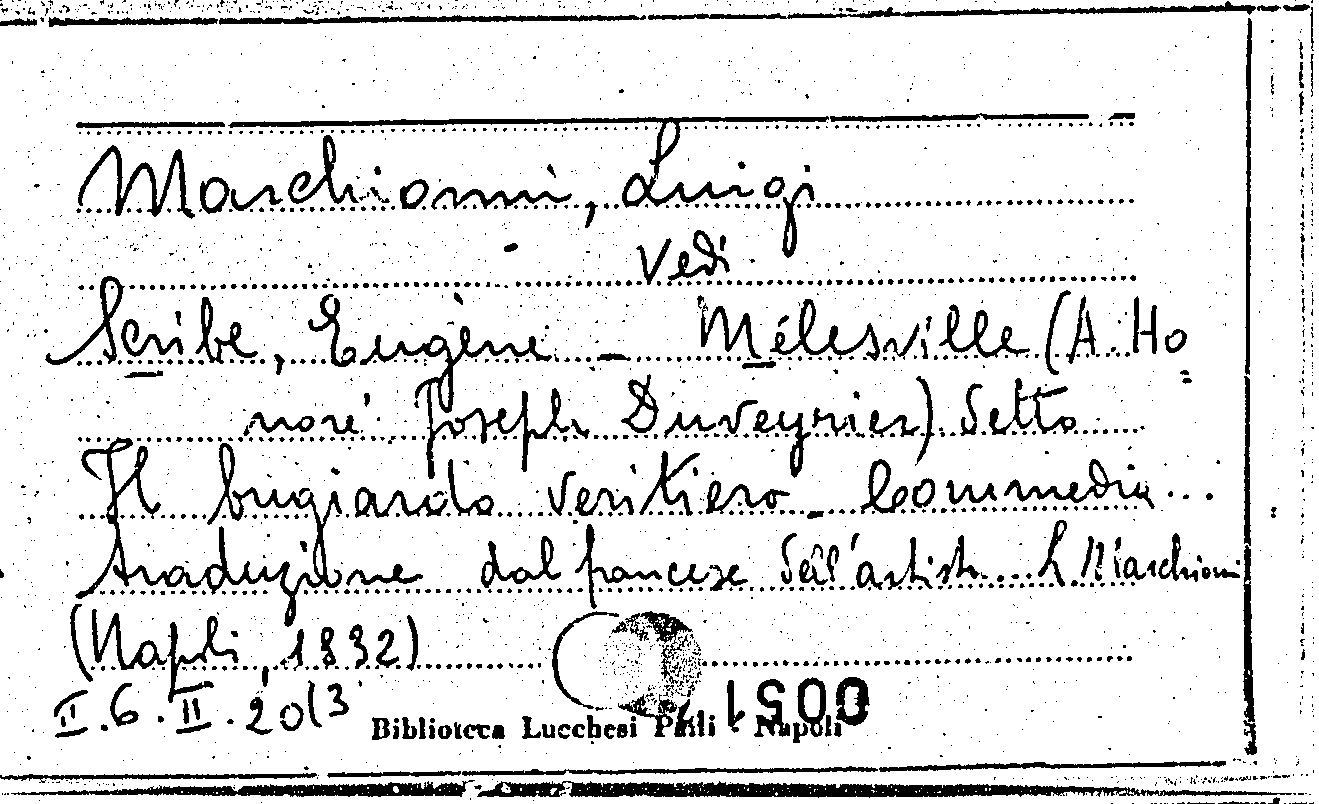 Marchionni, Luigi
Vedi
Scribe, Eugène - Mélesville (A. Ho=
noré Joseph Duveyrier) detto
Il bugiardo veritiero. Commedia...
traduzione dal francese dell'artista... L. Marchionni
(Napoli, 1832)
II.6.II.20(3
Biblioteca Lucchesi Palli - Napoli